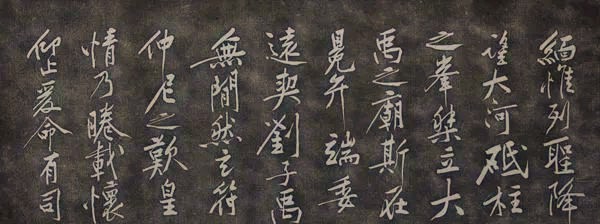 緬惟列聖降
望大河砥柱
之峯桀立大
禹之廟斯在
冕弁端委
遠契劉子禹
無間然玄符
仲尼之歎皇
情乃睠載懷
仰止爰命有司